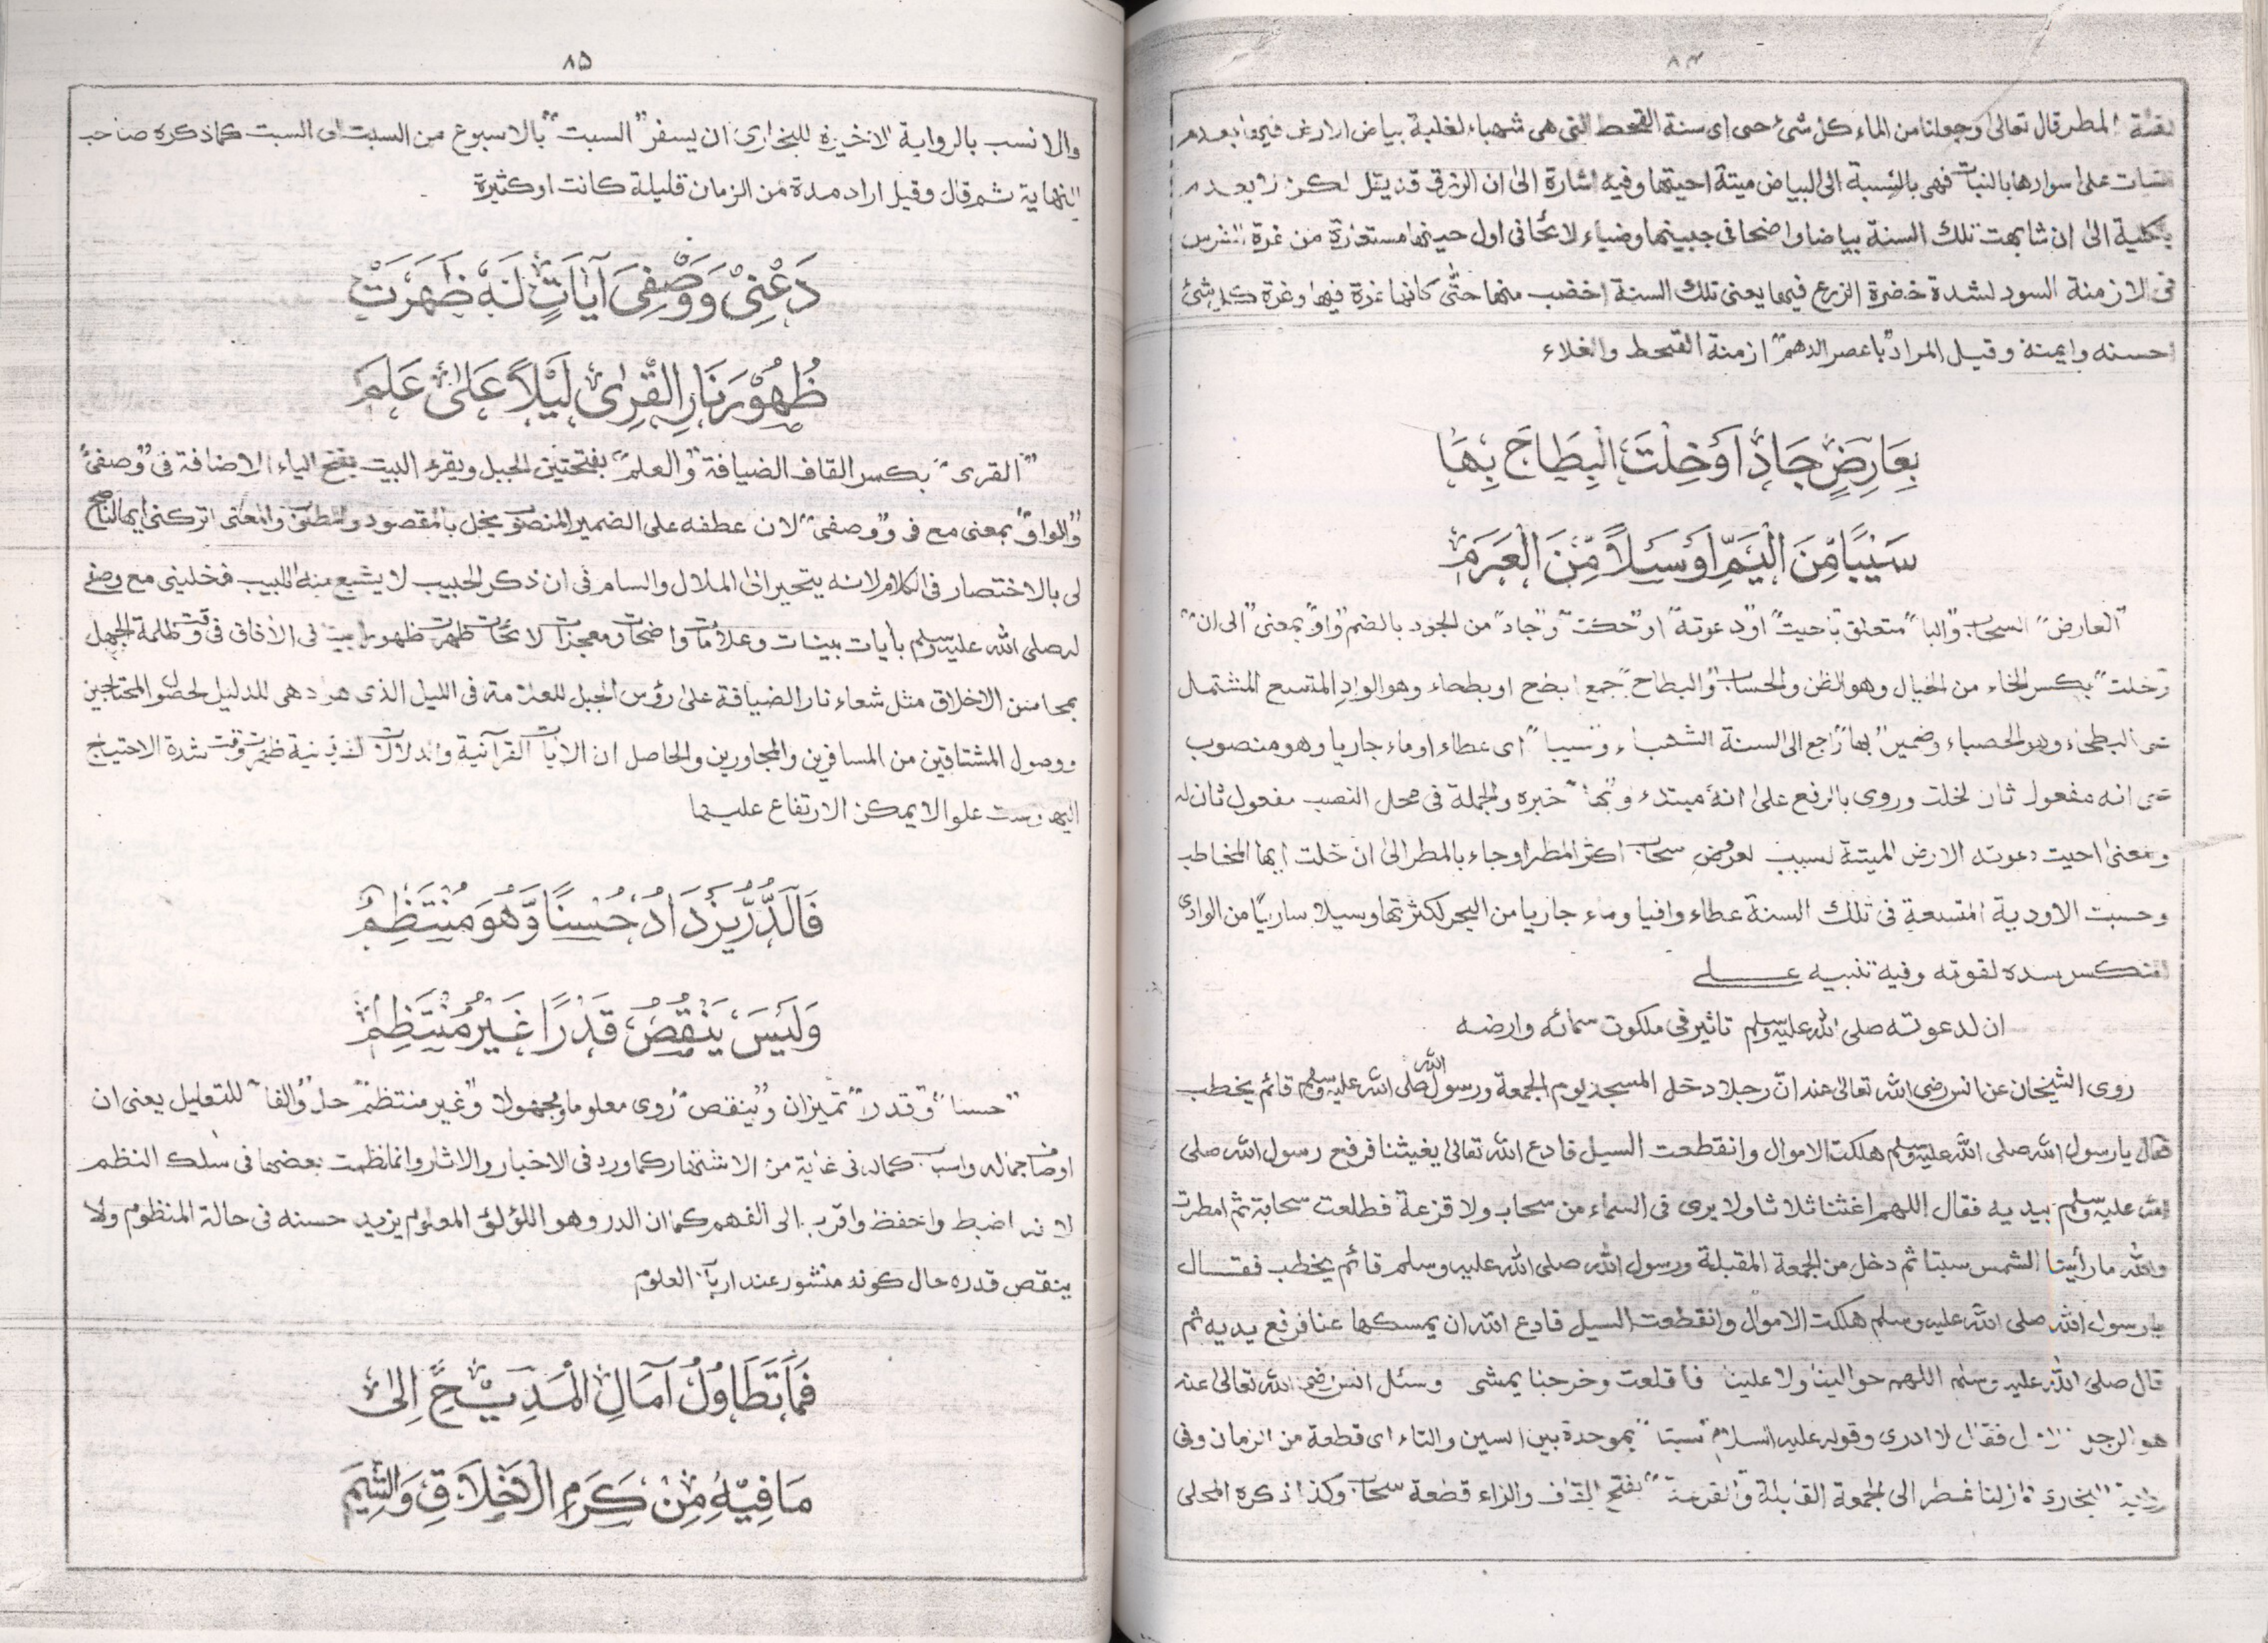 ٨٤
لقلة المطر قال تعالى وجعلنا من الماء كل شئ حى اى سنة القحط التى هى شهباء لغلبة بياض الارض فيها بعدم
نبات على اسوادها بالنبات فهى بالنسبة الى البياض ميتة احيتها وفيه اشارة الى ان الرزق قد يقل لكن لا يعدم
بالكلية الى ان شابهت تلك السنة بياضا واضحا فى جبينها وضياء لائحا فى اول حينها مستعارة من غرة الفرس
فى الازمنة السود لشدة خضرة الزرع فيها يعنى تلك السنة اخضب منها حتى كانها غرة فيها وغرة كل شئ
احسنه وايمنه وقيل المراد "باعصر الدهم" ازمنة القحط والغلاء
بِعَارِضٍ جَادَ اَوْ خِلْتَ الْبِطَاحَ بِهَا
سَيْبًا مِّنَ الْيَمِّ اَوْ سَيْلًا مِّنَ الْعَرَمِ
"العارض" السحاب و"البا" متعلق باحيت او "دعوته" او "حكت" و"جاد" من الجود بالضم و"او" بمعنى "الى ان"
و"خلت" بكسر الخاء من الخيال وهو الظن والحساب "والبطاح" جمع ابطح او بطحاء وهو الواد المتسع المشتمل
على البطحاء وهو الحصباء وضمير "بها" راجع الى السنة الشهباء و"سيبا" اى عطاء او ماء جاريا وهو منصوب
على انه مفعول ثان لخلت وروى بالرفع على انه مبتدء و"بها" خبره والجملة فى محل النصب مفعول ثان له
ومعنى احيت دعوته الارض الميتة لسبب لعروض سحاب اكثر المطر او جاء بالمطر الى ان خلت ايها المخاطب
وحسبت الاودية المتسعة فى تلك السنة عطاء وافيا وماء جاريا من البحر لكثرتها وسيلا ساريًا من الوادى
المنكسر سده لقوته وفيه تنبيه على
ان لدعوته صلى الله عليه وسلم تاثير فى ملكوت سمائه وارضه
روى الشيخان عن انس رضى الله تعالى عنه ان رجلا دخل المسجد يوم الجمعة ورسول الله صلى الله عليه وسلم قائم يخطب
فقال يا رسول الله صلى الله عليه وسلم هلكت الاموال وانقطعت السبل فادع الله تعالى يغيثنا فرفع رسول الله صلى
الله عليه وسلم بيديه فقال اللهم اغثنا ثلاثا ولا يرى فى السماء من سحاب ولا قزعة فطلعت سحابة ثم امطرت
والله ما رأينا الشمس سبتا ثم دخل من الجمعة المقبلة ورسول الله صلى الله عليه وسلم قائم يخطب فقال
يا رسول الله صلى الله عليه وسلم هلكت الاموال وانقطعت السبل فادع الله ان يمسكها عنا فرفع يديه ثم
قال صلى الله عليه وسلم اللهم حوالينا ولا علينا فاقلعت وخرجنا يمشى وسئل انس رضى الله تعالى عنه
هو الرجل الاول فقال لا ادرى وقوله عليه السلام "سبتا" بموحدة بين السين والتاء اى قطعة من الزمان وفى
رواية البخارى فازلنا نمطر الى الجمعة القابلة والقزعة "بفتح القاف والزاء قطعة سحاب وكذا ذكره المحلى
٨٥
والانسب بالرواية الاخيرة للبخارى ان يسفر "السبت" بالاسبوع من السبت الى السبت كما ذكره صاحب
النهاية ثم قال وقيل اراد مدة من الزمان قليلة كانت او كثيرة
دَعْنِىْ وَوَصْفِىَ آيَاتٍ لَهٗ ظَهَرَتْ
ظُهُوْرَ نَارِ الْقِرٰى لَيْلًا عَلٰى عَلَمٍ
"القرى" بكسر القاف الضيافة "والعلم" بفتحتين الجبل ويقرء البيت بفتح الياء الاضافة فى "وصفى"
"والواو" بمعنى مع فى "ووصفى" لان عطفه على الضمير المنصوب يخل بالمقصود والمطلوب والمعنى اتركنى ايها الناصح
لى بالاختصار فى الكلام لانه يتحير الى الملال والسام فى ان ذكر الحبيب لا يشبع منه اللبيب فخلينى مع وصفى
له صلى الله عليه وسلم بأيات بينات وعلامات واضحات ومعجزات لائحات ظهرت ظهورا بينا فى الأفاق فى وقت ظلمة الجهل
بمحاسن الاخلاق مثل شعاء نار الضيافة على رؤس الجبل للعلامة فى الليل الذى هو ادهى للدليل لحضور المحتاجين
ووصول المشتاقين من المسافرين والمجاورين والحاصل ان الايات القرآنية والدلالات الفرقانية ظهرت وقت شدة الاحتياج
اليها وعلت علوا لا يمكن الارتفاع عليها
فَالدُّرُّ يَزْدَادُ حُسْنًا وَّهُوَ مُنْتَظِمٌ
وَلَيْسَ يَنْقُصُ قَدْرًا غَيْرَ مُنْتَظِمٍ
"حسنا" و"قدرا" تميزان و"ينقص" روى معلوما ومجهولا و"غير منتظم" حال "والفا" للتعليل يعنى ان
اوصاف جماله واسباب كماله فى غاية من الاشتهار كما ورد فى الاخبار والاثار وانما نظمت بعضها فى سلك النظم
لانه اضبط واحفظ واقرب الى الفهم كما ان الدر وهو اللؤلؤ المعلوم يزيد حسنه فى حالة المنظوم ولا
ينقص قدره حال كونه منثور عند ارباب العلوم
فَمَا تَطَاوُلُ آمَالِ الْمَدِيْحِ اِلٰى
مَا فِيْهِ مِنْ كَرَمِ الْاَخْلَاقِ وَالشِّيَمِ